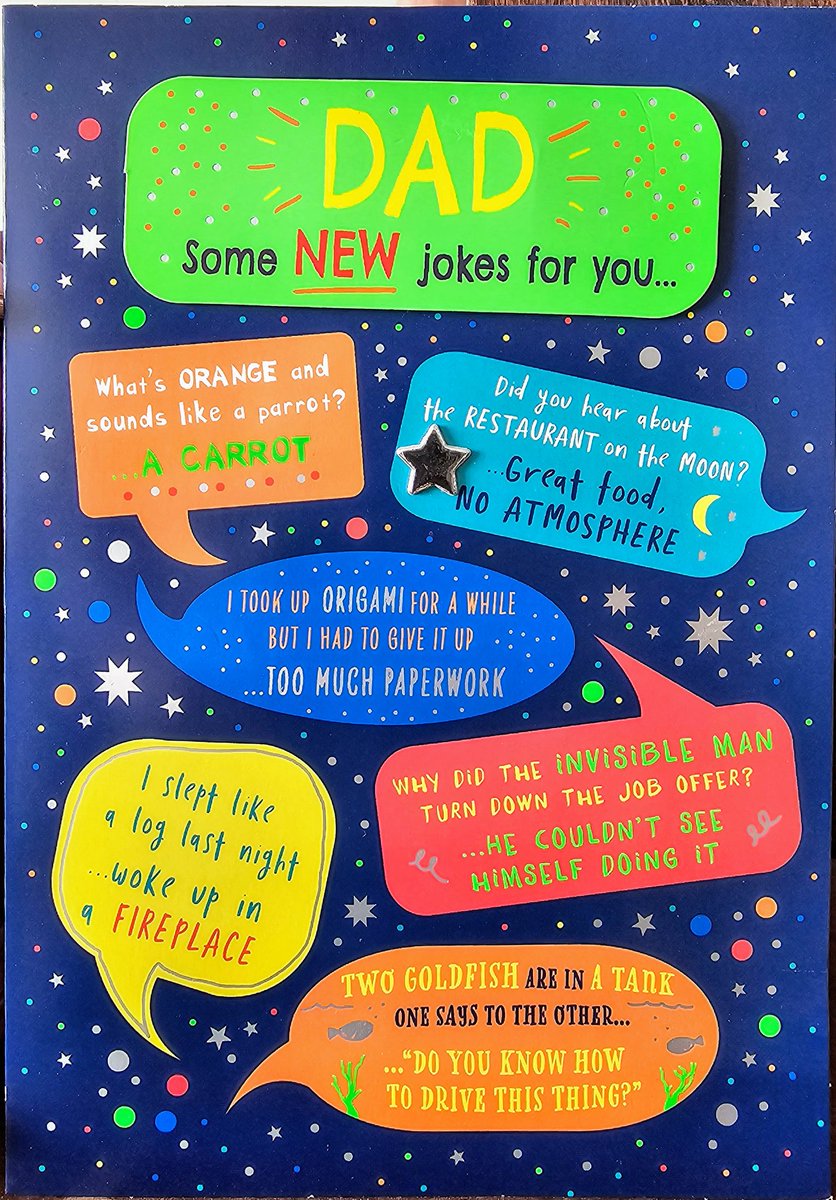 DAD
Some NEW jokes for you...
What's ORANGE and
sounds like a parrot?
...A CARROT
Did you hear about
the RESTAURANT on the MOON?
...Great food,
NO ATMOSPHERE
I TOOK UP ORIGAMI FOR A WHILE
BUT I HAD TO GIVE IT UP
...TOO MUCH PAPERWORK
WHY DID THE INVISIBLE MAN
TURN DOWN THE JOB OFFER?
...HE COULDN'T SEE
HIMSELF DOING IT
I slept like
a log last night
...woke up in
a FIREPLACE
TWO GOLDFISH ARE IN A TANK
ONE SAYS TO THE OTHER...
..."DO YOU KNOW HOW
TO DRIVE THIS THING?"